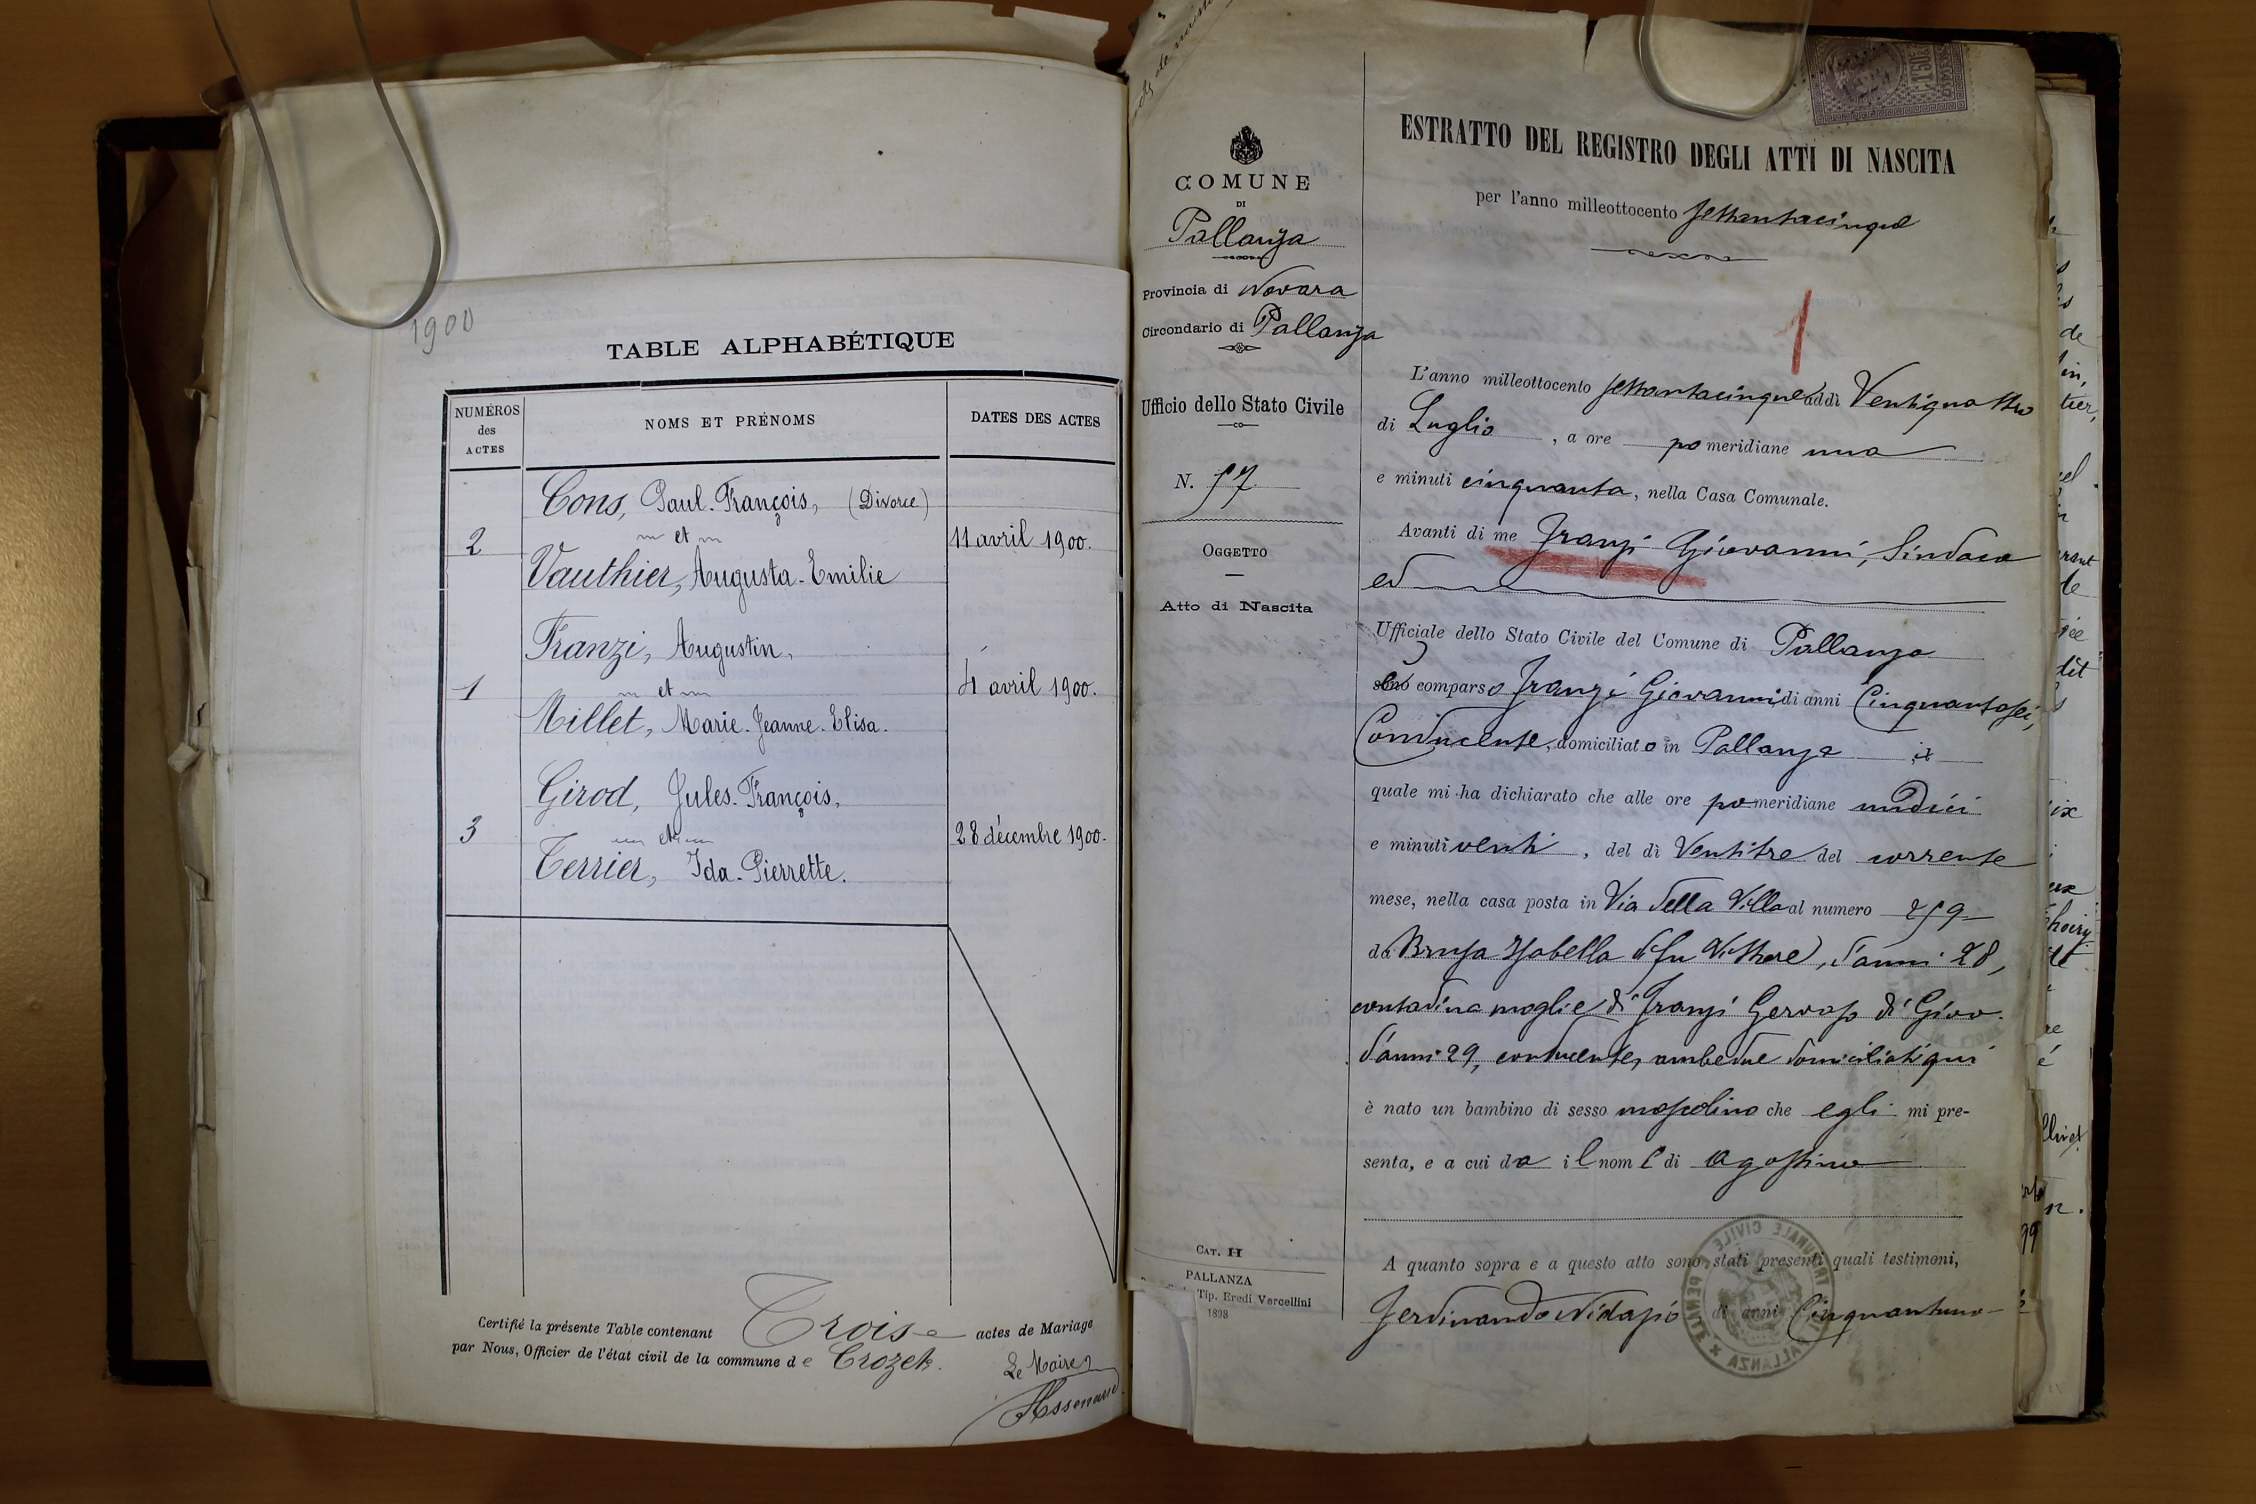 1900
TABLE ALPHABÉTIQUE
NUMÉROS des ACTES
NOMS ET PRÉNOMS
DATES DES ACTES
Cons, Paul-François, (Divorce)
2 et 11 avril 1900.
Vauthier, Augusta-Emilie
Franzi, Augustin,
1 et 4 avril 1900.
Millet, Marie-Jeanne-Elisa.
Girod, Jules-François,
3 et 28 décembre 1900.
Terrier, Ida-Pierrette.
Certifié la présente Table contenant Trois actes de Mariage
par Nous, Officier de l'état civil de la commune de Crozet.
Le Maire
COMUNE
DI
Pallanza
Provincia di Novara
Circondario di Pallanza
Ufficio dello Stato Civile
N. 57
OGGETTO
Atto di Nascita
CAT. H
PALLANZA
Tip. Eredi Vercellini
1898
ESTRATTO DEL REGISTRO DEGLI ATTI DI NASCITA
per l'anno milleottocento settantacinque
1
L'anno milleottocento settantacinque addì Ventiquattro
di Luglio, a ore pomeridiane una
e minuti cinquanta, nella Casa Comunale.
Avanti di me Franzi Giovanni, Sindaco
ed
Ufficiale dello Stato Civile del Comune di Pallanza
comparso Franzi Giovanni di anni Cinquantasei,
Conducente, domiciliato in Pallanza il
quale mi ha dichiarato che alle ore pomeridiane undici
e minuti venti, del dì Ventitre del corrente
mese, nella casa posta in Via della Villa al numero 259
da Brusa Isabella di fu Vittore, d'anni 28,
contadina moglie di Franzi Gervaso di Giov.
d'anni 29, conducente, ambedue domiciliati qui
è nato un bambino di sesso mascolino che egli mi pre-
senta, e a cui da il nome di Agostino
A quanto sopra e a questo atto sono stati presenti quali testimoni,
Ferdinando Nidasio di anni Cinquantuno
TRIBUNALE CIVILE E PENALE PALLANZA